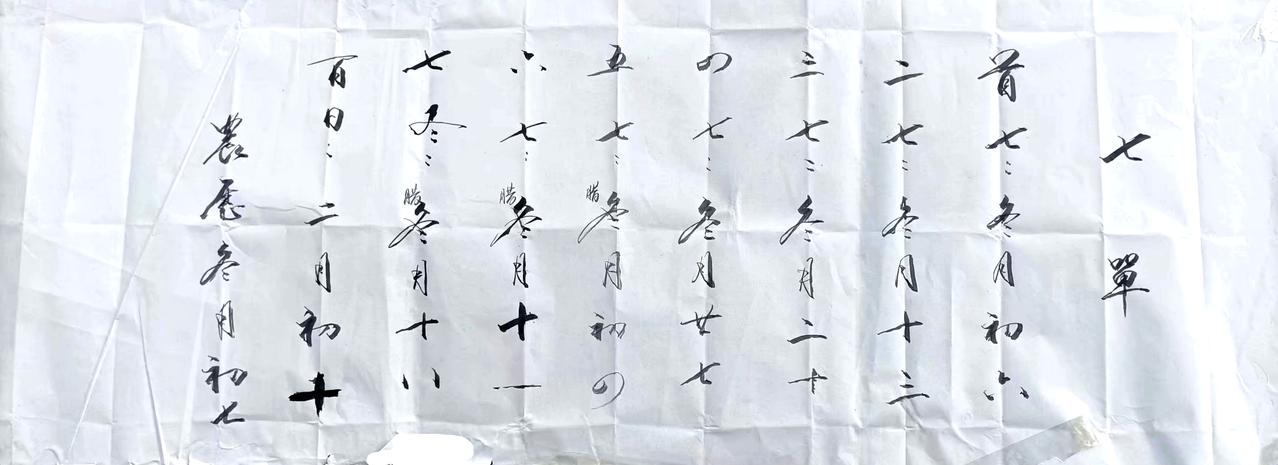 七單
首七：冬月初六
二七：冬月十三
三七：冬月二十
四七：冬月廿七
五七：臘冬月初四
六七：腊冬月十一
七冬：腊冬月十八
百日：二月初十
農歷冬月初七